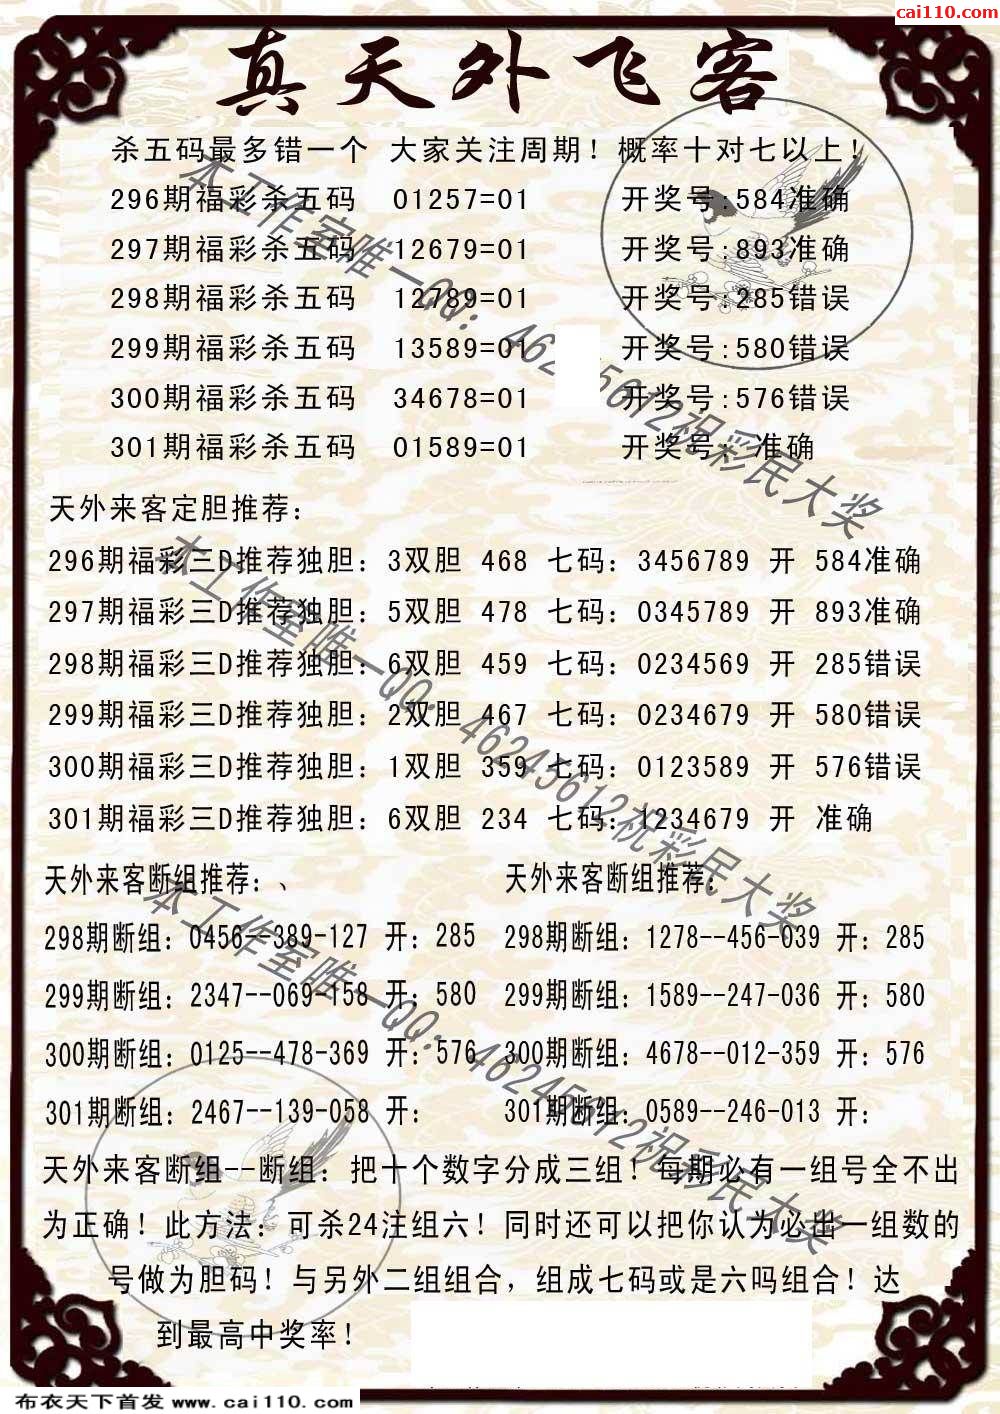 cai110.com
真天外飞客
杀五码最多错一个 大家关注周期！概率十对七以上！
296期福彩杀五码 01257=01 开奖号:584准确
297期福彩杀五码 12679=01 开奖号:893准确
298期福彩杀五码 12789=01 开奖号:285错误
299期福彩杀五码 13589=01 开奖号:580错误
300期福彩杀五码 34678=01 开奖号:576错误
301期福彩杀五码 01589=01 开奖号: 准确
天外来客定胆推荐：
296期福彩三D推荐独胆：3双胆 468 七码：3456789 开 584准确
297期福彩三D推荐独胆：5双胆 478 七码：0345789 开 893准确
298期福彩三D推荐独胆：6双胆 459 七码：0234569 开 285错误
299期福彩三D推荐独胆：2双胆 467 七码：0234679 开 580错误
300期福彩三D推荐独胆：1双胆 359 七码：0123589 开 576错误
301期福彩三D推荐独胆：6双胆 234 七码：1234679 开 准确
天外来客断组推荐：、
298期断组：0456--389-127 开：285
299期断组：2347--069-158 开：580
300期断组：0125--478-369 开：576
301期断组：2467--139-058 开：
天外来客断组推荐：
298期断组：1278--456-039 开：285
299期断组：1589--247-036 开：580
300期断组：4678--012-359 开：576
301期断组：0589--246-013 开：
天外来客断组--断组：把十个数字分成三组！每期必有一组号全不出
为正确！此方法：可杀24注组六！同时还可以把你认为必出一组数的
号做为胆码！与另外二组组合，组成七码或是六吗组合！达
到最高中奖率！
本工作室唯一QQ：46245612祝彩民大奖
本工作室唯一QQ：46245612祝彩民大奖
本工作室唯一QQ：46245612祝彩民大奖
布衣天下首发 www.cai110.com